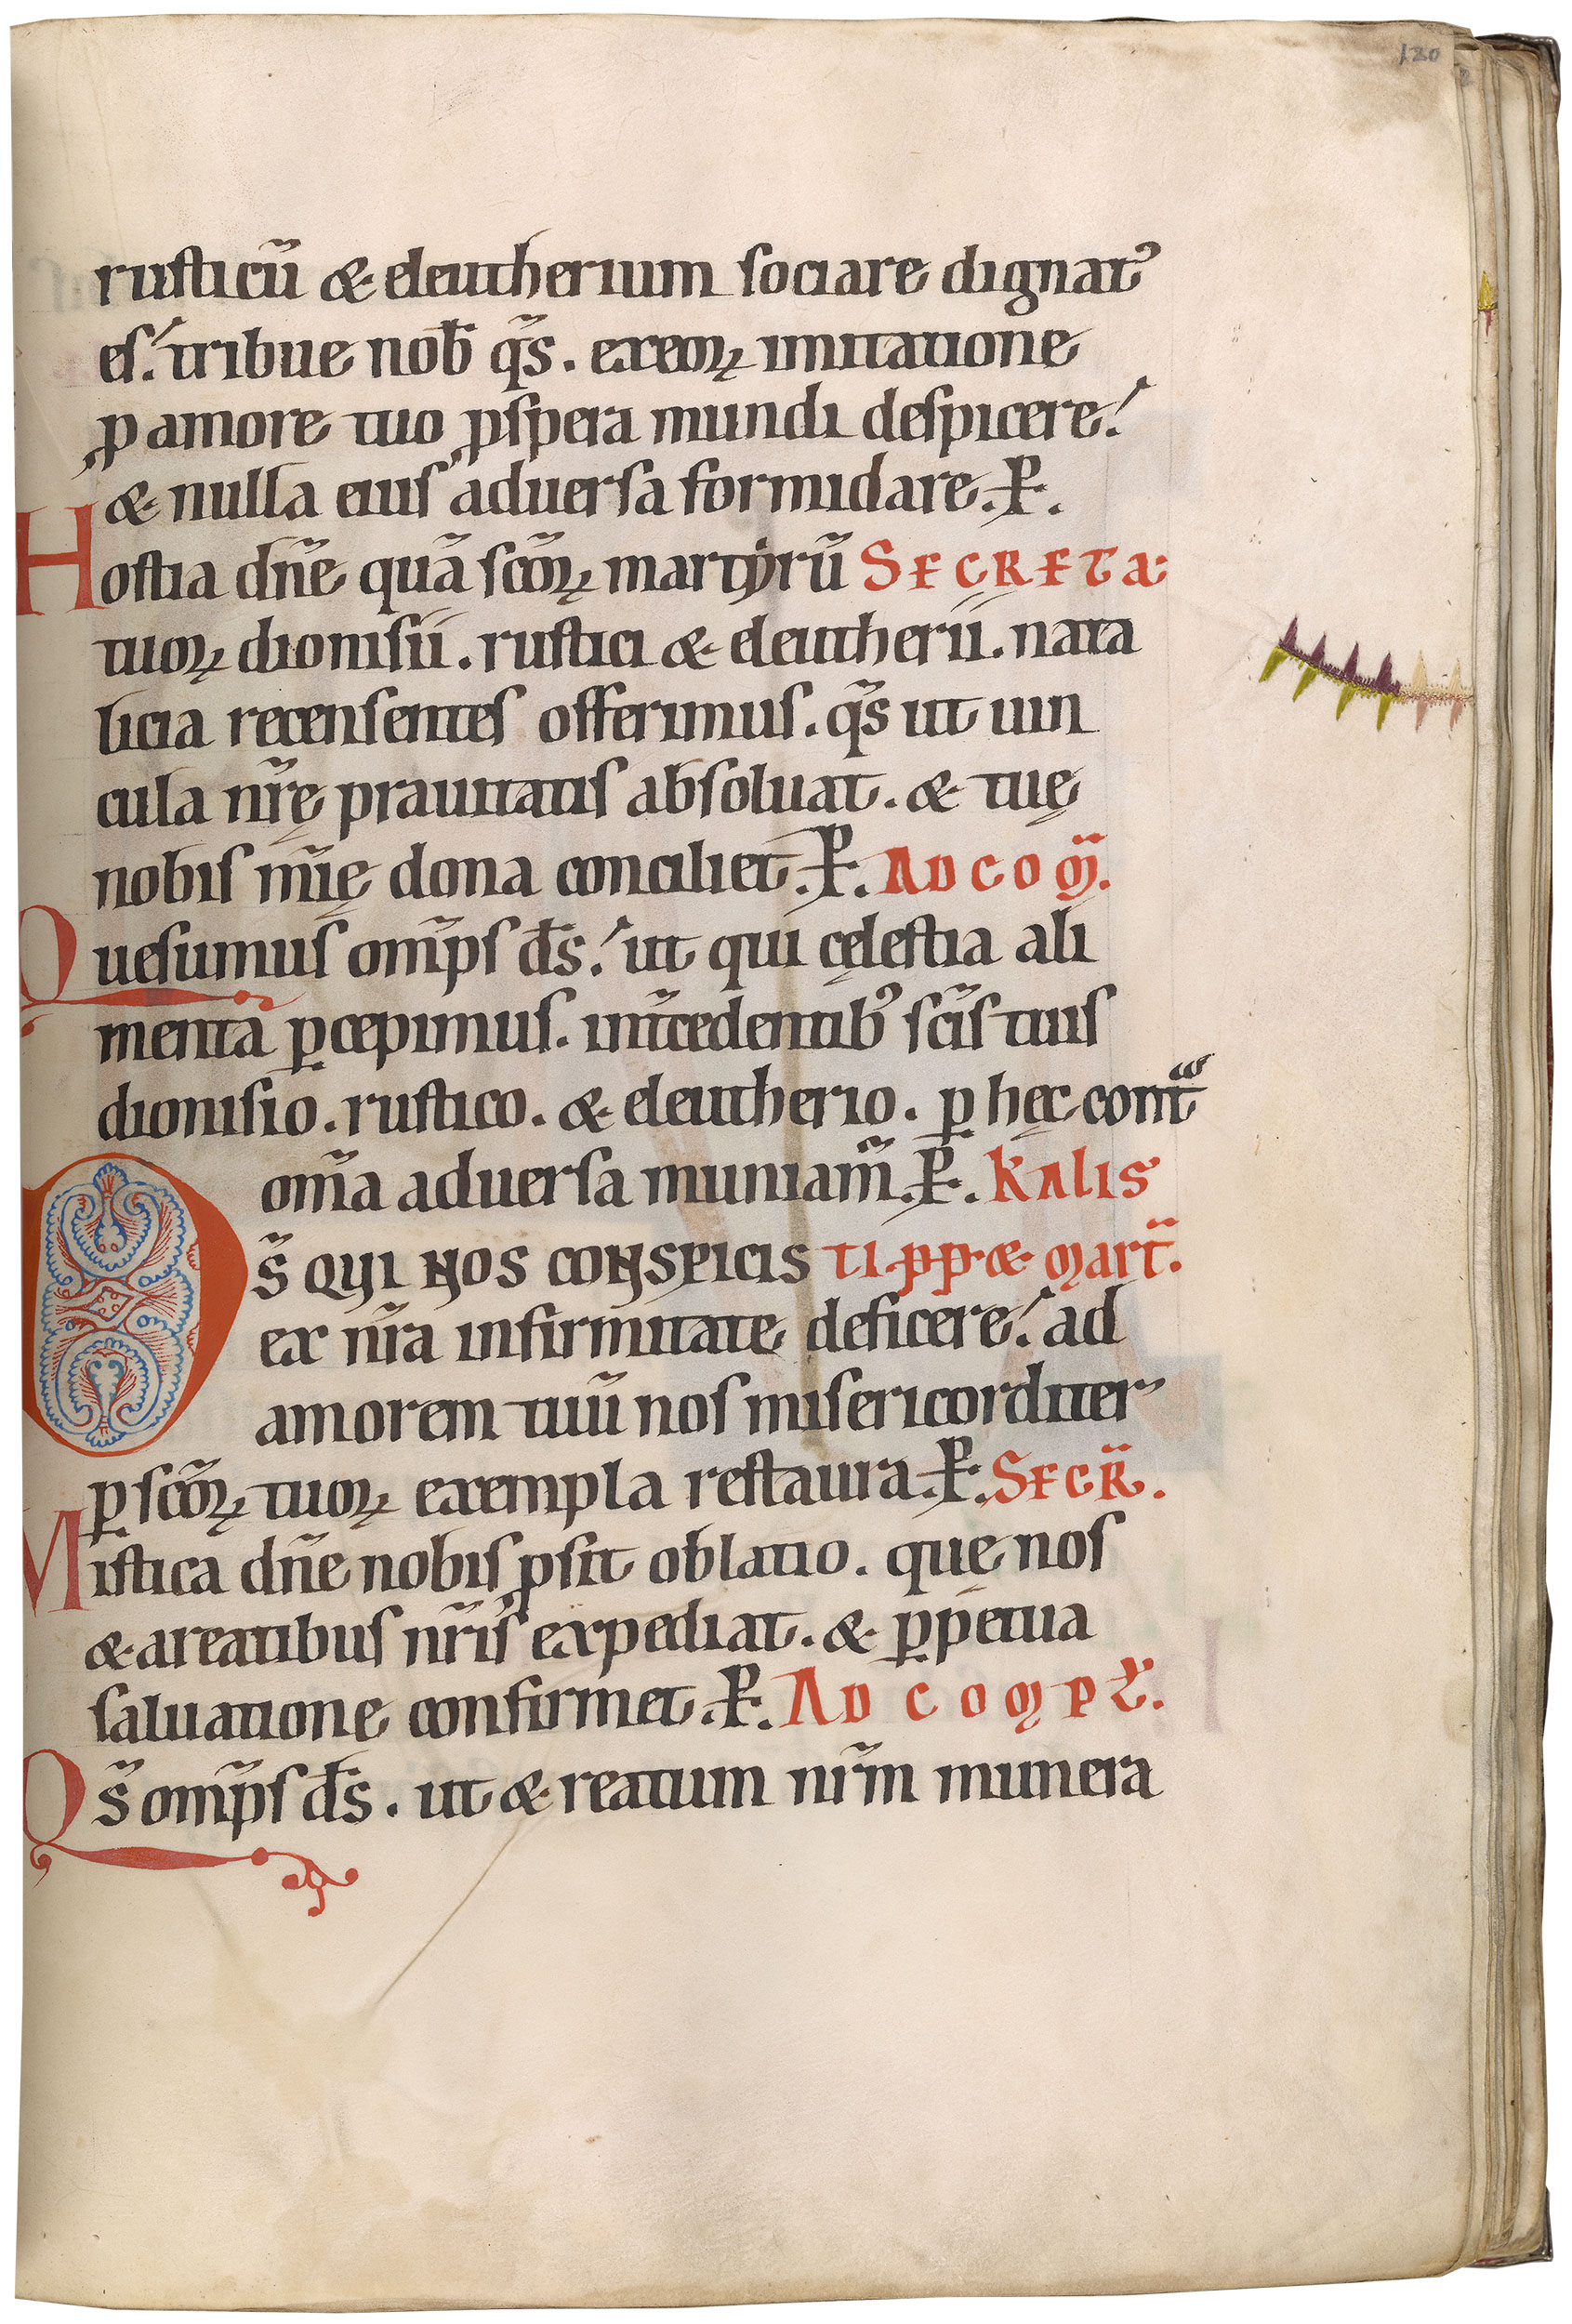 120
rusticũ & eleutherium sociare dignatꝰ
es. tribue nob̃ q̃s. exeoꝝ imitatione
ꝓ amore tuo ꝓspera mundi despicere.
& nulla eius aduersa formidare. P̱.
Hostia dñe quã scõꝝ martyrũ SECRETA
tuoꝝ dionisii. rustici & eleutherii. nata
licia recensentes offerimus. q̃s ut uin
cula nr̃ę prauitatis absoluat. & tuę
nobis mĩę dona conciliet. P̱. AD COM̃.
Quesumus omp̃s d̃s. ut qui cęlestia ali
menta ꝑcepimus. int̃cedentibꝰ scĩs tuis
dionisio. rustico. & eleutherio. ꝑ hęc cont̃
om̃a aduersa muniam̃. P̱. KALIS
Ds̃ QUI NOS CONSPICIS TI. PP̃. & Mart̃.
ex nr̃a infirmitate deficere. ad
amorem tuũ nos misericorditer
ꝑ scõꝝ tuoꝝ exempla restaura. P̱. SECR̃.
Mistica dñe nobis ꝓsit oblatio. quę nos
& a reatibus nr̃is expediat. & ꝑpetua
saluatione confirmet. P̱. AD COMPL̃.
Qs̃ omp̃s d̃s. ut & reatum nr̃m munera